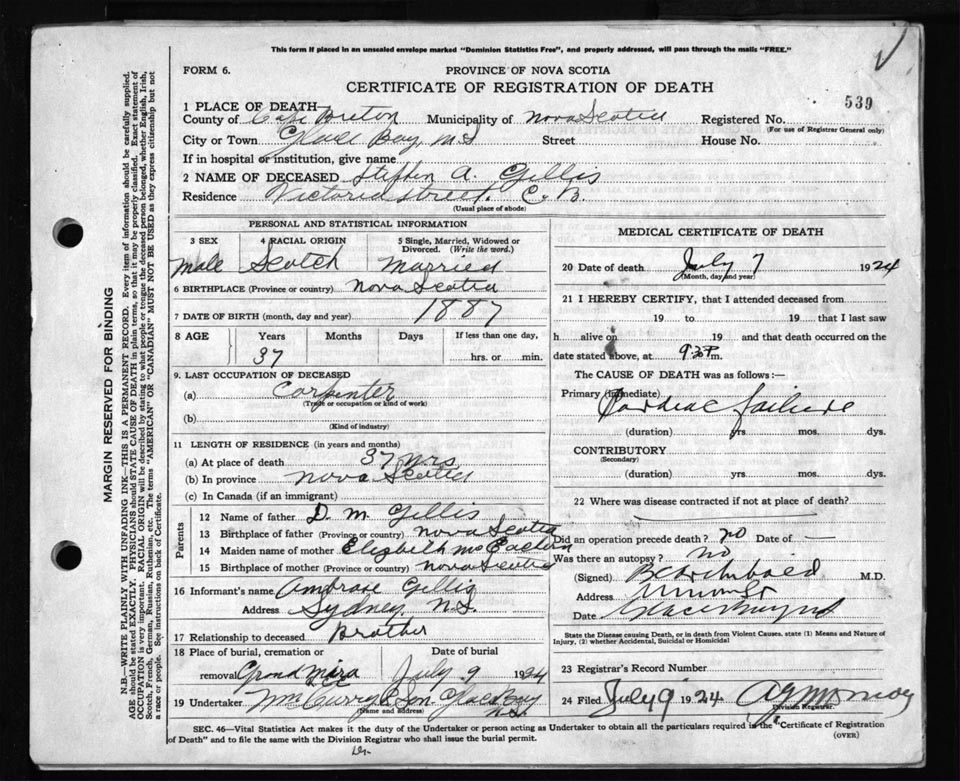 This form if placed in an unsealed envelope marked "Dominion Statistics Free", and properly addressed, will pass through the mails "FREE."
FORM 6.
PROVINCE OF NOVA SCOTIA
CERTIFICATE OF REGISTRATION OF DEATH
539
1 PLACE OF DEATH
County of Cape Breton Municipality of Nova Scotia Registered No.
(For use of Registrar General only)
City or Town Glace Bay, N.S Street House No.
If in hospital or institution, give name
2 NAME OF DECEASED Stephen A. Gillis
Residence Victoria Street. C. B.
(Usual place of abode)
PERSONAL AND STATISTICAL INFORMATION
3 SEX 4 RACIAL ORIGIN 5 Single, Married, Widowed or Divorced. (Write the word.)
Male Scotch Married
6 BIRTHPLACE (Province or country) Nova Scotia
7 DATE OF BIRTH (month, day and year) 1887
8 AGE Years Months Days If less than one day,
37 hrs. or min.
9. LAST OCCUPATION OF DECEASED
(a) Carpenter
(Trade or occupation or kind of work)
(b)
(Kind of industry)
11 LENGTH OF RESIDENCE (in years and months)
(a) At place of death 37 yrs
(b) In province Nova Scotia
(c) In Canada (if an immigrant)
Parents
12 Name of father D. M. Gillis
13 Birthplace of father (Province or country) Nova Scotia
14 Maiden name of mother Elizbeth
15 Birthplace of mother (Province or country) Nova Scotia
16 Informant's name Ambrose Gillis
Address Sydney N.S.
17 Relationship to deceased Brother
18 Place of burial, cremation or removal Grand Mira
Date of burial July 9 1924
19 Undertaker Wm Curry & Son Glace Bay N.S.
(Name and address)
MEDICAL CERTIFICATE OF DEATH
20 Date of death July 7 1924
(Month, day and year)
21 I HEREBY CERTIFY, that I attended deceased from
19 to 19 that I last saw
h alive on 19 and that death occurred on the
date stated above, at P. m.
The CAUSE OF DEATH was as follows:—
Primary (Immediate) Cardiac failure
(duration) yrs mos. dys.
CONTRIBUTORY
(Secondary)
(duration) yrs mos. dys.
22 Where was disease contracted if not at place of death?
Did an operation precede death? no Date of —
Was there an autopsy? No
(Signed) M.D.
Address
Date
State the Disease causing Death, or in death from Violent Causes, state (1) Means and Nature of Injury, (2) whether Accidental, Suicidal or Homicidal
23 Registrar's Record Number
24 Filed July 9 1924
Division Registrar
SEC. 46—Vital Statistics Act makes it duty of the Undertaker or person acting as Undertaker to obtain all the particulars required in the "Certificate of Registration
of Death" and to file the same with the Division Registrar who shall issue the burial permit.
(OVER)
MARGIN RESERVED FOR BINDING
N.B.—WRITE PLAINLY WITH UNFADING INK—THIS IS A PERMANENT RECORD. Every item of information should be carefully supplied.
AGE should be stated EXACTLY. PHYSICIANS should STATE CAUSE OF DEATH in plain terms, so that it may be properly classified. Exact statement of
OCCUPATION is very important. RACIAL ORIGIN will be described by stating to what people or tongue the deceased person belonged, whether English, Irish,
Scotch, French, German, Russian, Ruthenian, etc. The terms "AMERICAN" or "CANADIAN" MUST NOT BE USED as they express citizenship but not
a race or people. See instructions on back of Certificate.